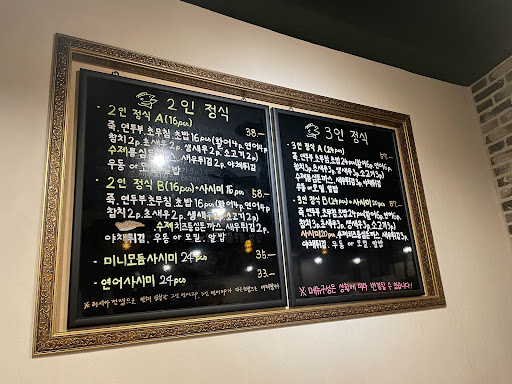 2인 정식
· 2인 정식 A(16pcs) 38.-
죽, 연두부, 초무침, 초밥 16pcs(활어4p, 연어4p
참치2p, 초새우2p, 생새우2p, 소고기2p)
수제등심돈까스, 새우튀김2p, 야채튀김
우동 or 모밀, 알밥
· 2인 정식 B(16pcs)+사시미 16pcs 58.-
죽, 연두부, 초무침, 초밥 16pcs(활어4p, 연어4p
참치2p, 초새우2p, 생새우2p, 소고기2p)
수제치즈등심돈까스, 새우튀김2p
야채튀김, 우동 or 모밀, 알밥
· 미니모듬사시미 24pcs 35.-
· 연어사시미 24pcs 33.-
3인 정식
· 3인 정식 A (24pcs)
죽, 연두부, 초무침, 초밥 24pcs(활어6p, 연어6p
참치3p, 초새우3p, 생새우3p, 소고기3p)
수제등심돈까스, 새우튀김3p, 야채튀김
우동 or 모밀, 알밥
· 3인 정식 B(24pcs)+사시미 20pcs 87.-
죽, 연두부, 초무침, 초밥 24pcs(활어6p, 연어6p
참치3p, 초새우3p, 생새우3p, 소고기3p)
사시미20pcs, 수제치즈등심돈까스, 새우튀김3p
야채튀김, 우동 or 모밀, 알밥
※ 메뉴구성은 상황에 따라 변경될 수 있습니다!